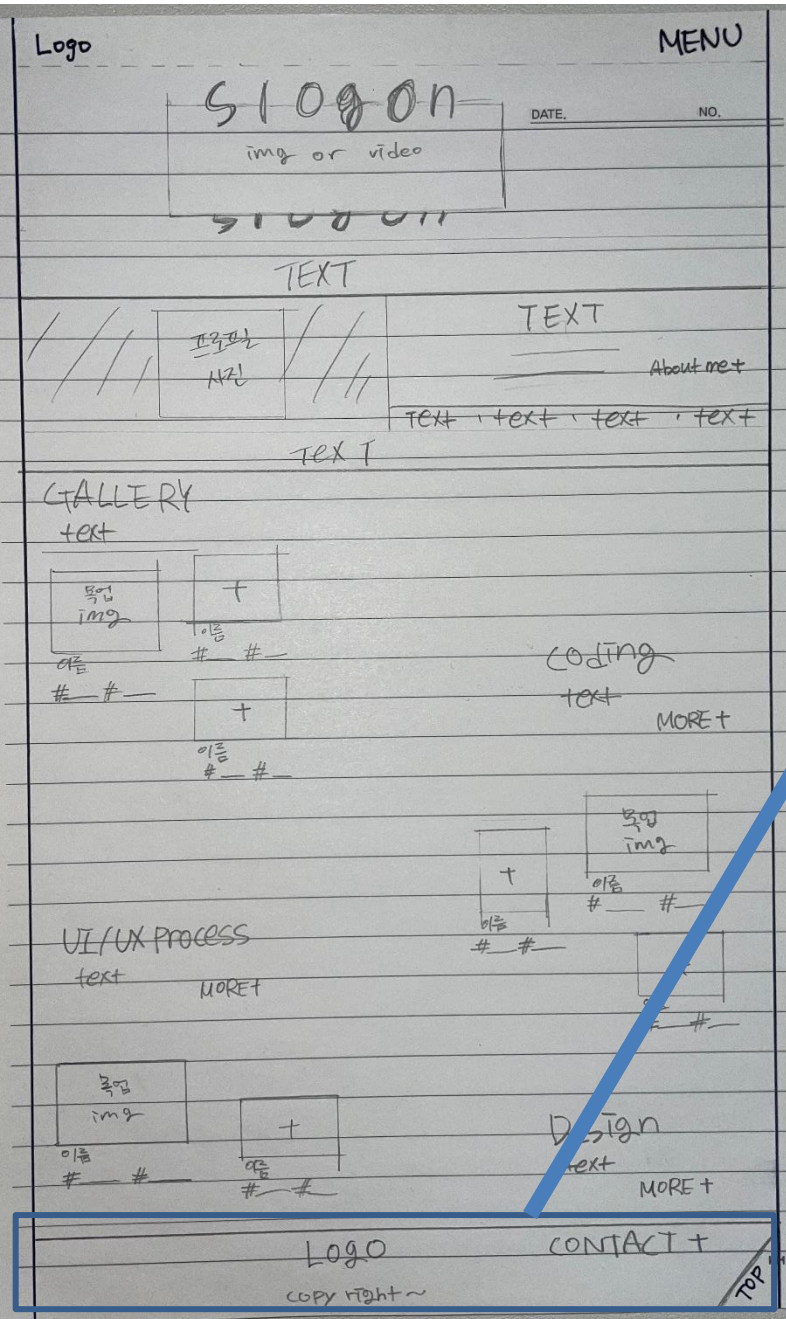 Logo
MENU
Slogan
DATE.
NO.
img or video
TEXT
프로필
사진
TEXT
About me+
Text · text · text · text
TEXT
GALLERY
text
목업
img
이름
#__ #__
+
이름
#__ #__
+
이름
#__ #__
coding
text
MORE+
목업
img
이름
#__ #__
+
이름
#__ #__
UI/UX process
text
MORE+
#__
목업
img
이름
#__ #__
+
이름
#__ #__
Design
text
MORE+
LOGO
CONTACT +
copy right~
TOP